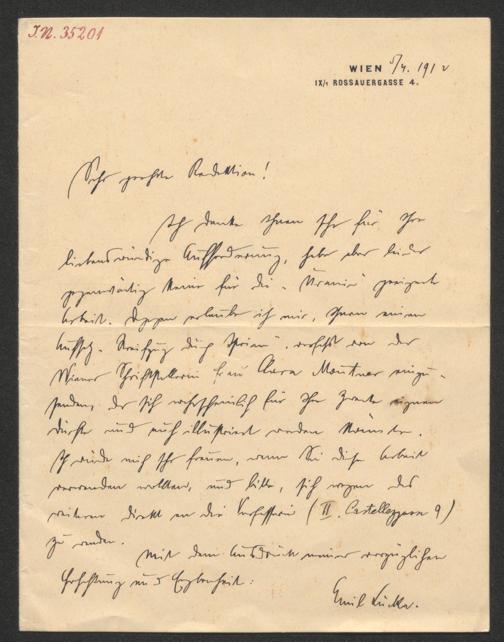 I.N. 35201
WIEN 5/4. 1912
IX/1 ROSSAUERGASSE 4.
Sehr geehrte Redaktion!
Ich danke Ihnen sehr für Ihre
liebenswürdige Aufforderung, habe aber leider
gegenwärtig keine für die „Urania" geeignete
Arbeit. Dagegen erlaube ich mir, Ihnen einen
Aufsatz „Streifzug durch Istrien", verfaßt von der
Wiener Schriftstellerin Frau Clara Mautner einzu-
senden, der sich wahrscheinlich für Ihre Zwecke eignen
dürfte und auch illustriert werden könnte.
Ich würde mich sehr freuen, wenn Sie diese Arbeit
verwenden wollten, und bitte, sich wegen des
weiteren direkt an die Verfasserin (II. Castellezgasse 9)
zu wenden.
Mit dem Ausdruck meiner vorzüglichen
Hochachtung und Ergebenheit:
Emil Lucka.